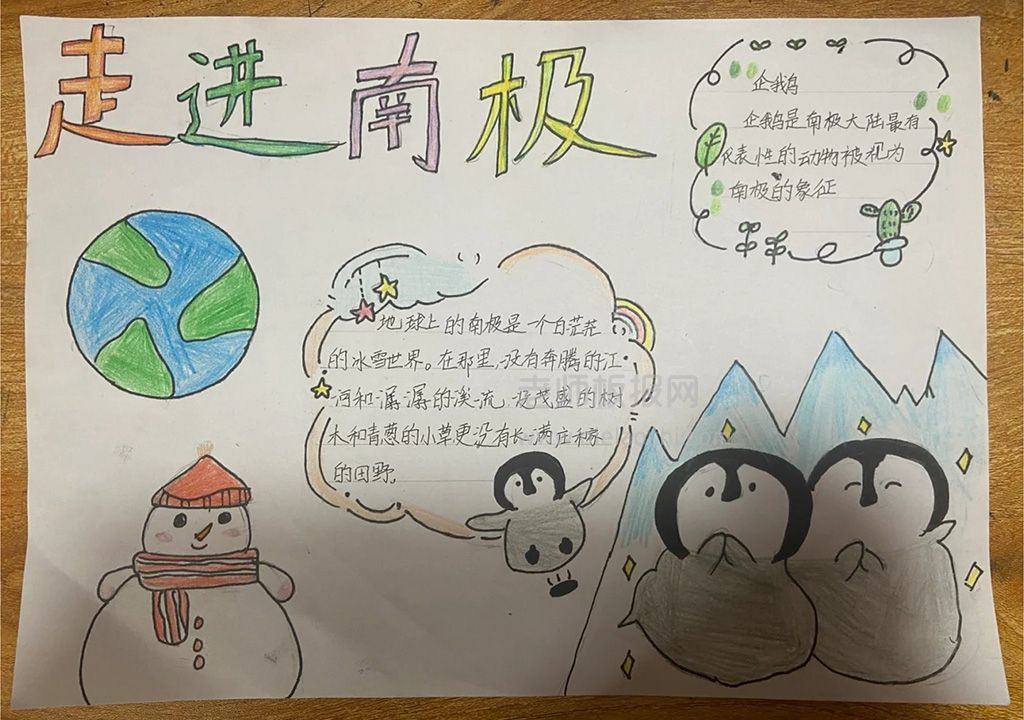 走进南极
企鹅
企鹅是南极大陆最有
代表性的动物被视为
南极的象征
地球上的南极是一个白茫茫
的冰雪世界。在那里,没有奔腾的江
河和潺潺的溪流,没茂盛的树
木和青葱的小草更没有长满庄稼
的田野。
老师板报网